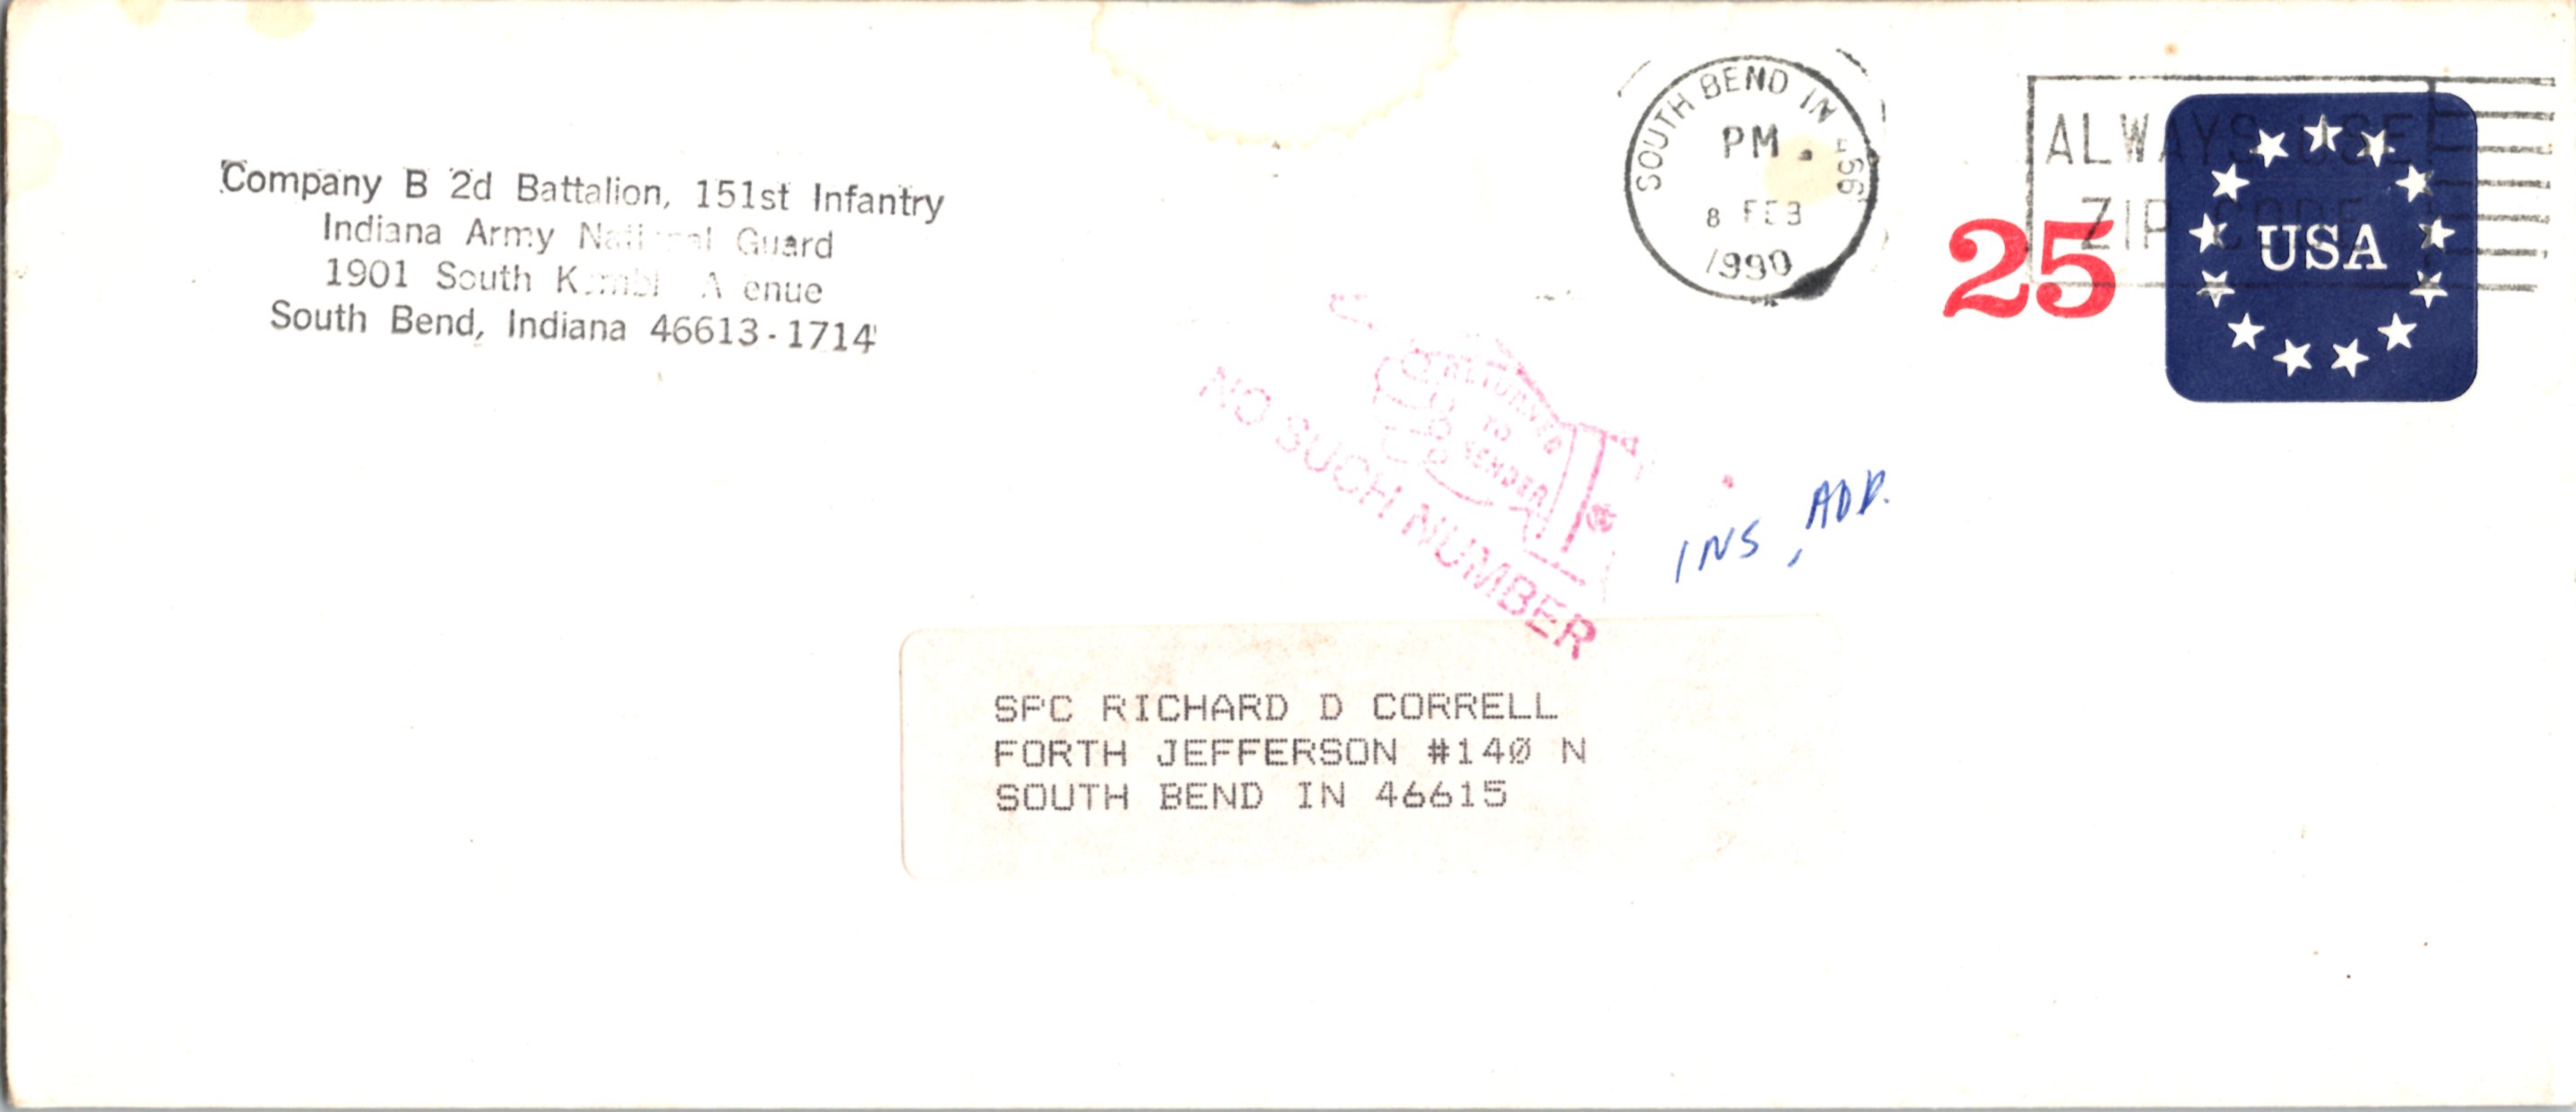 Company B 2d Battalion, 151st Infantry
Indiana Army National Guard
1901 South
South Bend, Indiana 46613-1714
SOUTH BEND IN
PM
8 FEB
1990
ALWAYS USE
ZIP CODE
25
USA
RETURNED
TO
SENDER
NO SUCH NUMBER
INS, ADD.
SPC RICHARD D CORRELL
FORTH JEFFERSON #140 N
SOUTH BEND IN 46615